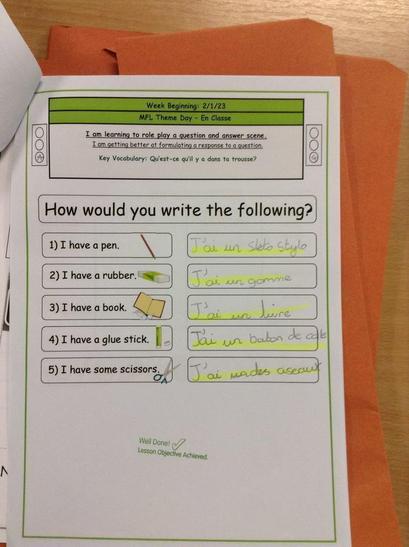 Week Beginning: 2/1/23
MFL Theme Day – En Classe
I am learning to role play a question and answer scene.
I am getting better at formulating a response to a question.
Key Vocabulary: Qu'est-ce qu'il y a dans ta trousse?
How would you write the following?
1) I have a pen.
J'ai un stylo
2) I have a rubber.
J'ai un gomme
3) I have a book.
J'ai un livre
4) I have a glue stick.
J'ai un baton de colle
5) I have some scissors.
J'ai des
Well Done!
Lesson Objective Achieved.